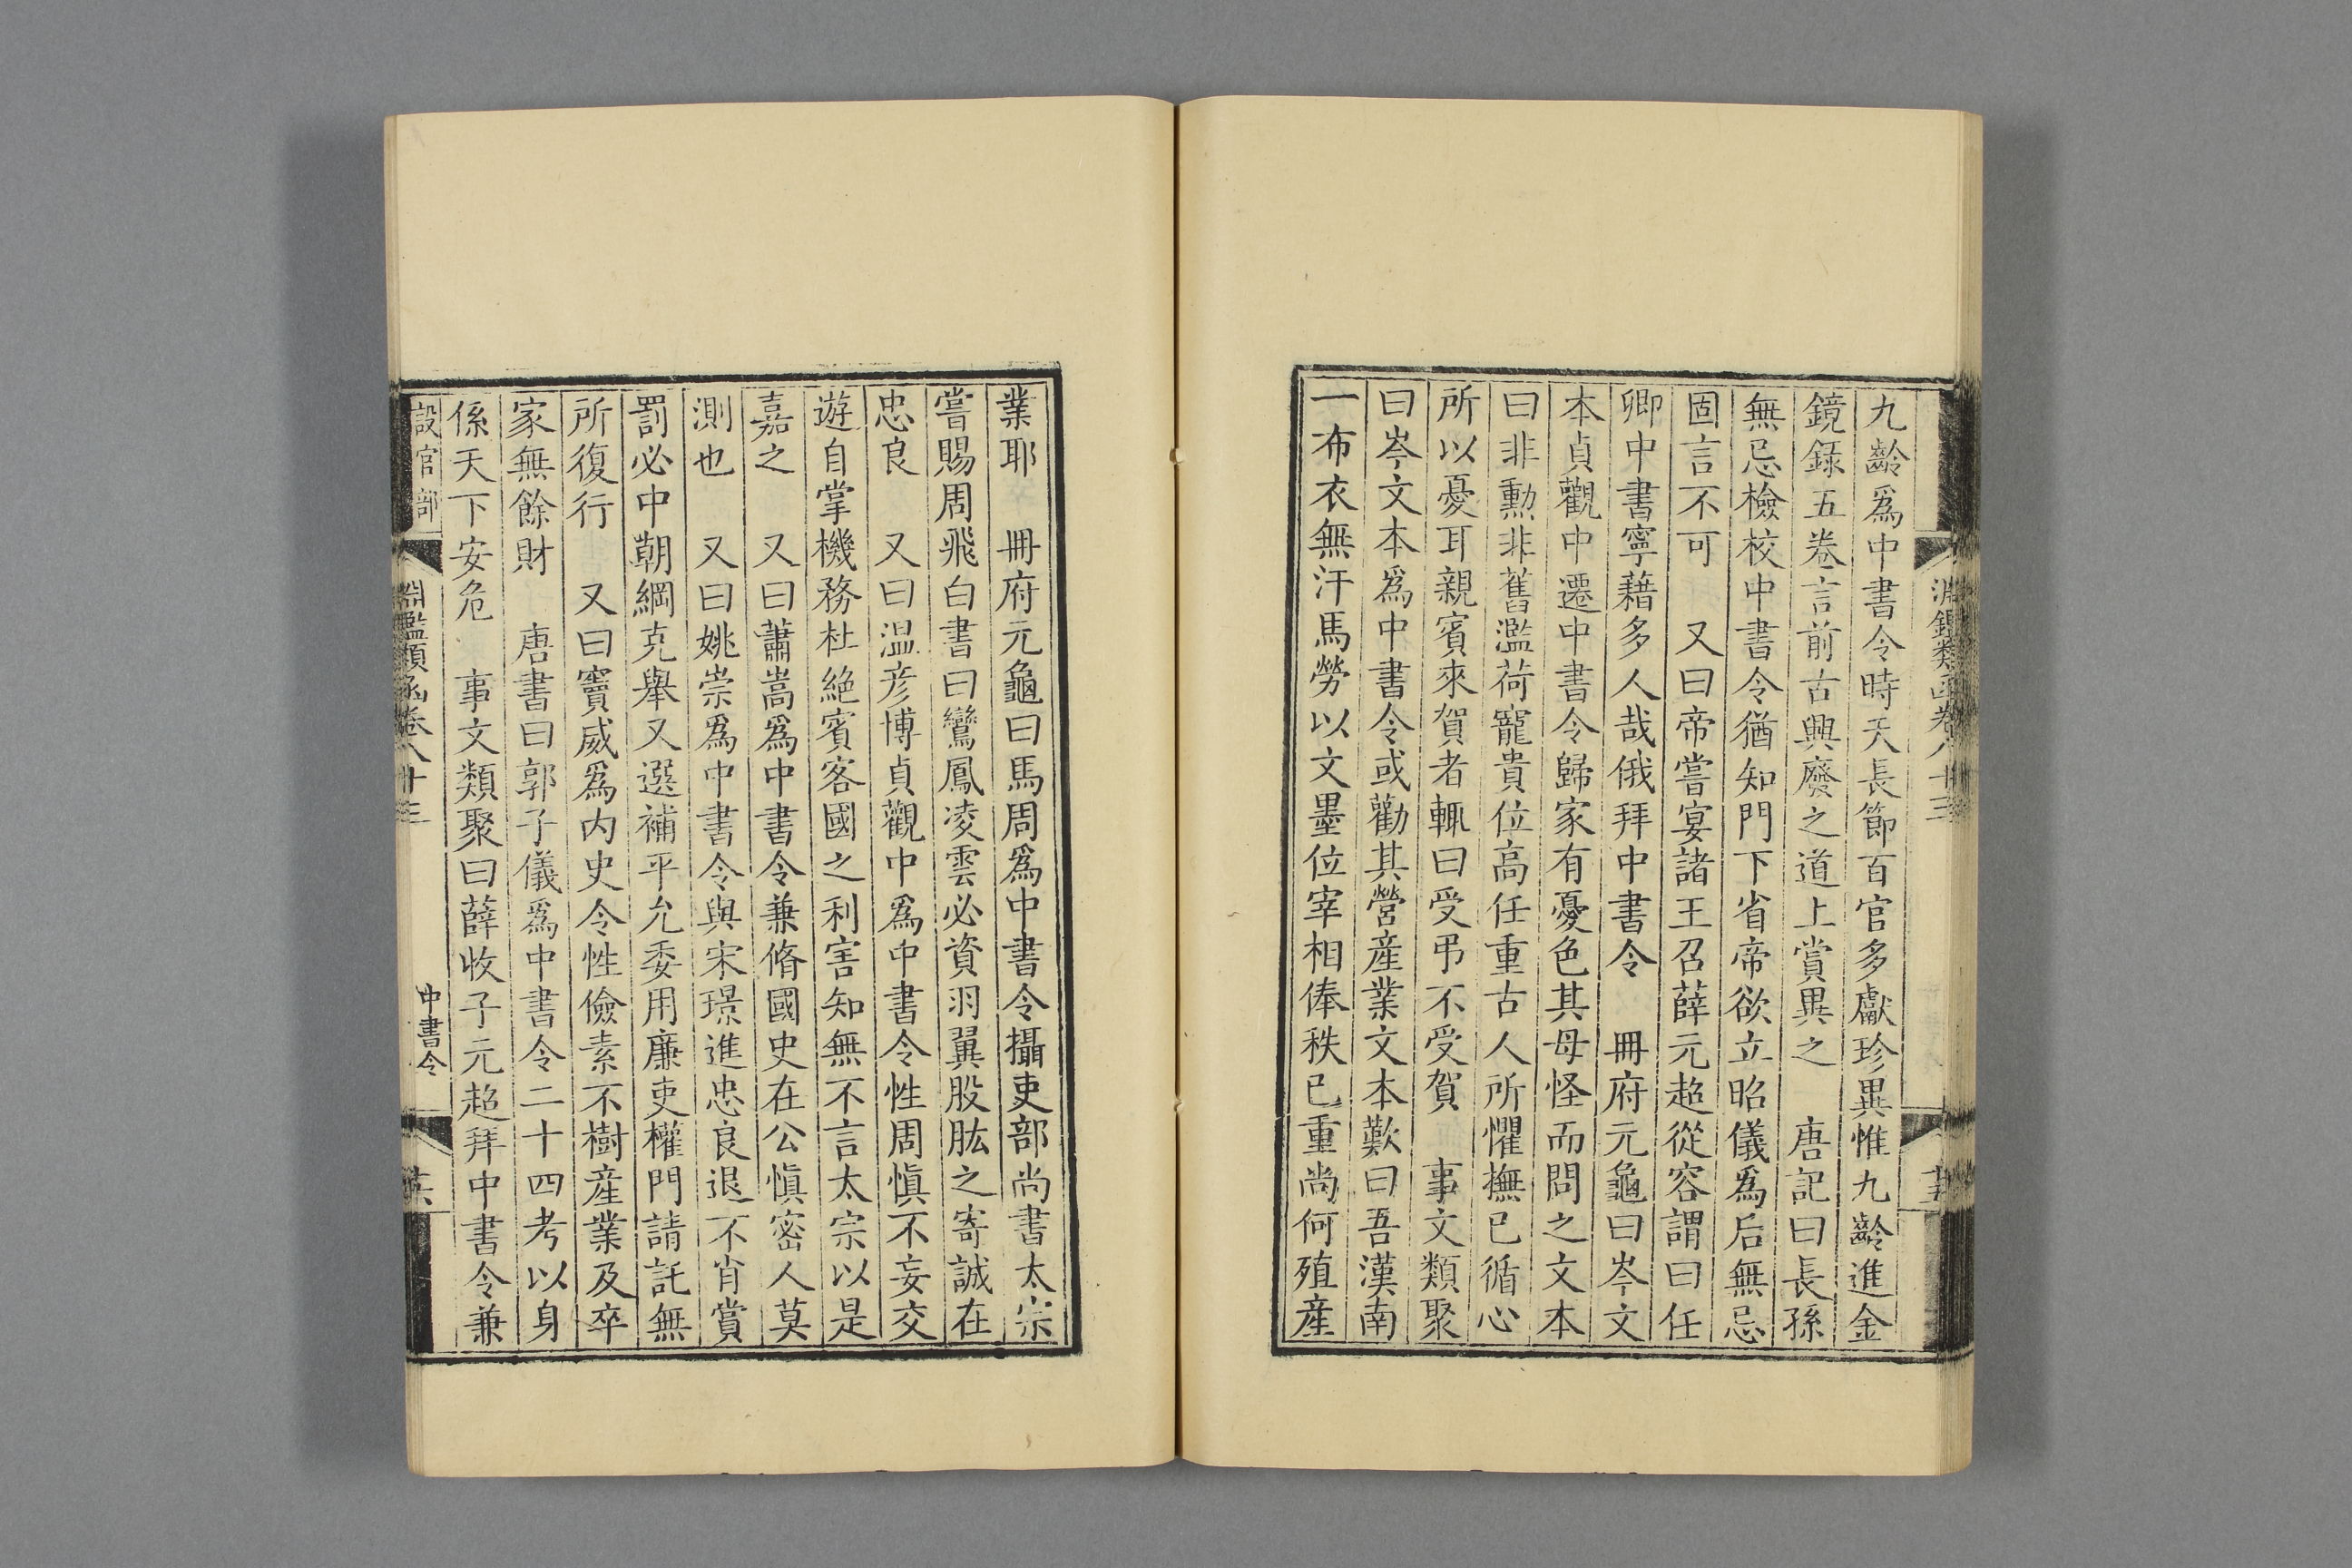 淵鑑類函卷八十三
九齡爲中書令時天長節百官多獻珍異惟九齡進金
鏡錄五卷言前古興廢之道上賞異之　唐記曰長孫
無忌檢校中書令猶知門下省帝欲立昭儀爲后無忌
固言不可　又曰帝嘗宴諸王召薛元超從容謂曰任
卿中書寧藉多人哉俄拜中書令　冊府元龜曰岑文
本貞觀中遷中書令歸家有憂色其母怪而問之文本
曰非勳非舊濫荷寵貴位高任重古人所懼撫已循心
所以憂耳親賓來賀者輒曰受弔不受賀　事文類聚
曰岑文本爲中書令或勸其營産業文本歎曰吾漢南
一布衣無汗馬勞以文墨位宰相俸秩已重尚何殖産
業耶　冊府元龜曰馬周爲中書令攝吏部尚書太宗
嘗賜周飛白書曰鸞鳳凌雲必資羽翼股肱之寄誠在
忠良　又曰温彦博貞觀中爲中書令性周愼不妄交
遊自掌機務杜絶賓客國之利害知無不言太宗以是
嘉之　又曰蕭嵩爲中書令兼脩國史在公愼密人莫
測也　又曰姚崇爲中書令與宋璟進忠良退不肖賞
罰必中朝綱克舉又選補平允委用廉吏權門請託無
所復行　又曰竇威爲内史令性儉素不樹産業及卒
家無餘財　唐書曰郭子儀爲中書令二十四考以身
係天下安危　事文類聚曰薛收子元超拜中書令兼
設官部　淵鑑類函卷八十三　中書令